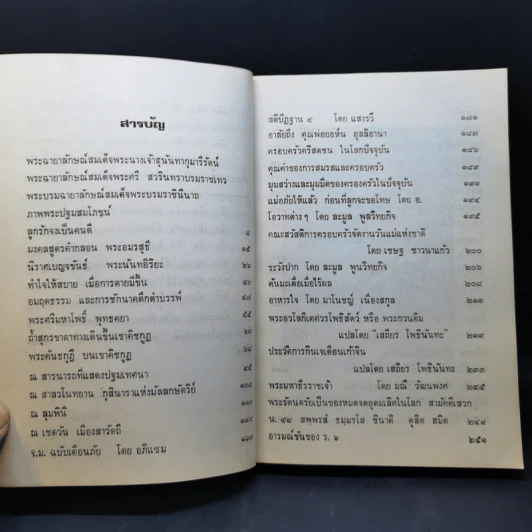 สารบัญ
พระฉายาลักษณ์สมเด็จพระนางเจ้าสุนันทากุมารีรัตน์
พระฉายาลักษณ์สมเด็จพระศรี สวรินทราบรมราชเทวี
พระบรมฉายาลักษณ์สมเด็จพระบรมราชินีนาถ
ภาพพระปฐมสมโภชน์
ลูกรักจงเป็นคนดี ๘
มงคลสูตรคำกลอน พระอมรสุธี ๑๕
นิราศเบญจขันธ์ พระนันทอิริยะ ๒๖
ทำใจให้สบาย เมื่อการตายมีขึ้น ๔๐
อมฤตธรรม และการชักนาคดึกดำบรรพ์
พระศรีมหาโพธิ์ พุทธคยา
ถ้ำสุกรขาตาทางเดินขึ้นเขาคิชกูฏ
พระคันธกุฎี บนเขาคิชกูฏ
ณ สารนารถที่แสดงปฐมเทศนา
ณ สาลวโนทยาน กุสินาราแห่งมัลลกษัตริย์
ณ ลุมพินี
ณ เชตวัน เมืองสาวัตถี
จ.ม. ฉบับเดือนภัย โดย อภิแซม
สติปัฏฐาน ๔ โดย แสงรวี ๑๘๑
อาลัยถึง คุณพ่อยอห์น อุลลิอานา ๑๘๓
ครอบครัวคริสตชน ในโลกปัจจุบัน ๑๘๖
คุณค่าของการสมรสและครอบครัว ๑๘๙
มุมสว่างและมุมมืดของครองครัวในปัจจุบัน ๑๙๑
แม่อภัยให้แล้ว ก่อนที่ลูกจะขอโทษ โดย อ. ๑๙๔
โอวาทต่างๆ โดย ละมูล พูลวิทยกิจ ๑๙๕
คณะสวัสดิการครอบครัวจัดงานวันแม่แห่งชาติ
โดย เชษฐ ชาวนาแก้ว ๒๐๐
ระวังปาก โดย ละมูล พูนวิทยกิจ ๒๐๖
ต้นมะเดื่อเมื่อไร้ผล ๒๐๘
อาหารใจ โดย มาโนชญ์ เนื่องสกุล ๒๑๑
พระอวโลกิเตศวรโพธิสัตว์ หรือ พระกวนอิม
แปลโดย "เสถียร โพธินันทะ" ๒๑๙
ประวัติการกินเจเดือนเก้าจีน
แปลโดย เสถียร โพธินันทะ ๒๓๓
พระมหาธีรราชเจ้า โดย มณี วัฒนพงศ ๒๔๕
น. ๙๙ สพฺพรสํ ธมฺมรโส ชินาติ ดุสิต สมิต ๒๔๙
อารมณ์ขันของ ร. ๖ ๒๕๑